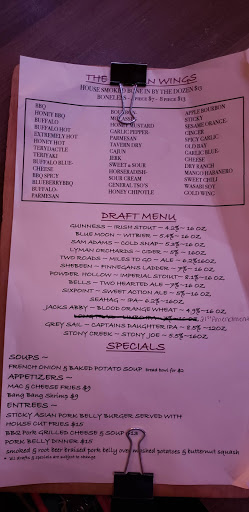 THE
WINGS
HOUSE SMOKED BONE IN BY THE DOZEN $13
BONELESS ~
BBQ
HONEY BBQ
BUFFALO
BUFFALO HOT
EXTREMELY HOT
HONEY HOT
TERYDACTLE
TERIYAKI
BUFFALO BLUE-
CHEESE
BBQ SPICY
BLUEBERRYBBQ
BUFFALO-
PARMESAN
BOURBON-
MOLASSES
HONEY MUSTARD
GARLIC PEPPER-
PARMESAN
TAVERN DRY
CAJUN
JERK
SWEET & SOUR
HORSERADISH-
SOUR CREAM
GENERAL TSO'S
HONEY CHIPOTLE
APPLE BOURBON
STICKY
SESAME ORANGE-
GINGER
SPICY GARLIC
OLD BAY
GARLIC BLUE-
CHEESE
DRY RANCH
MANGO HABANERO
SWEET CHILI
WASABI SOY
GOLD WING
DRAFT MENU
GUINNESS ~ IRISH STOUT ~ 4.2% ~ 16 OZ
BLUE MOON ~ WITBIER ~ 5.4% ~ 16 OZ
SAM ADAMS ~ COLD SNAP ~ 5.3% ~ 16 OZ
LYMAN ORCHARDS ~ CIDER ~ 5% ~ 16OZ
TWO ROADS ~ MILES TO GO ~ ALE ~ 6.2%16OZ
SHEBEEN ~ FINNEGANS LADDER ~ 7% ~ 16 OZ
POWDER HOLLOW ~ IMPERIAL STOUT ~ 8.2% ~ 16 OZ
BELLS ~ TWO HEARTED ALE ~ 7% ~ 16 OZ
SIXPOINT ~ SWEET ACTION ALE ~ 5.2% ~ 16 OZ
SEAHAG ~ IPA ~ 6.2% ~ 16OZ
JACKS ABBY ~ BLOOD ORANGE WHEAT ~ 4.9% ~ 16 OZ
GREY SAIL ~ CAPTAINS DAUGHTER IPA ~ 8.5% ~ 12OZ
STONY CREEK ~ STONY JOE ~ 5.5% ~ 16OZ
SPECIALS
SOUPS ~
FRENCH ONION & BAKED POTATO SOUP bread bowl for $2
APPETIZERS ~
MAC & CHEESE FRIES $9
Bang Bang Shrimp $9
ENTREES ~
STICKY ASIAN PORK BELLY BURGER SERVED WITH
HOUSE CUT FRIES $15
BBQ Pork GRILLED CHEESE & SOUP
PORK BELLY DINNER $15
smoked & root beer braised pork belly over mashed potatoes & butternut squash
* all drafts & specials are subject to change